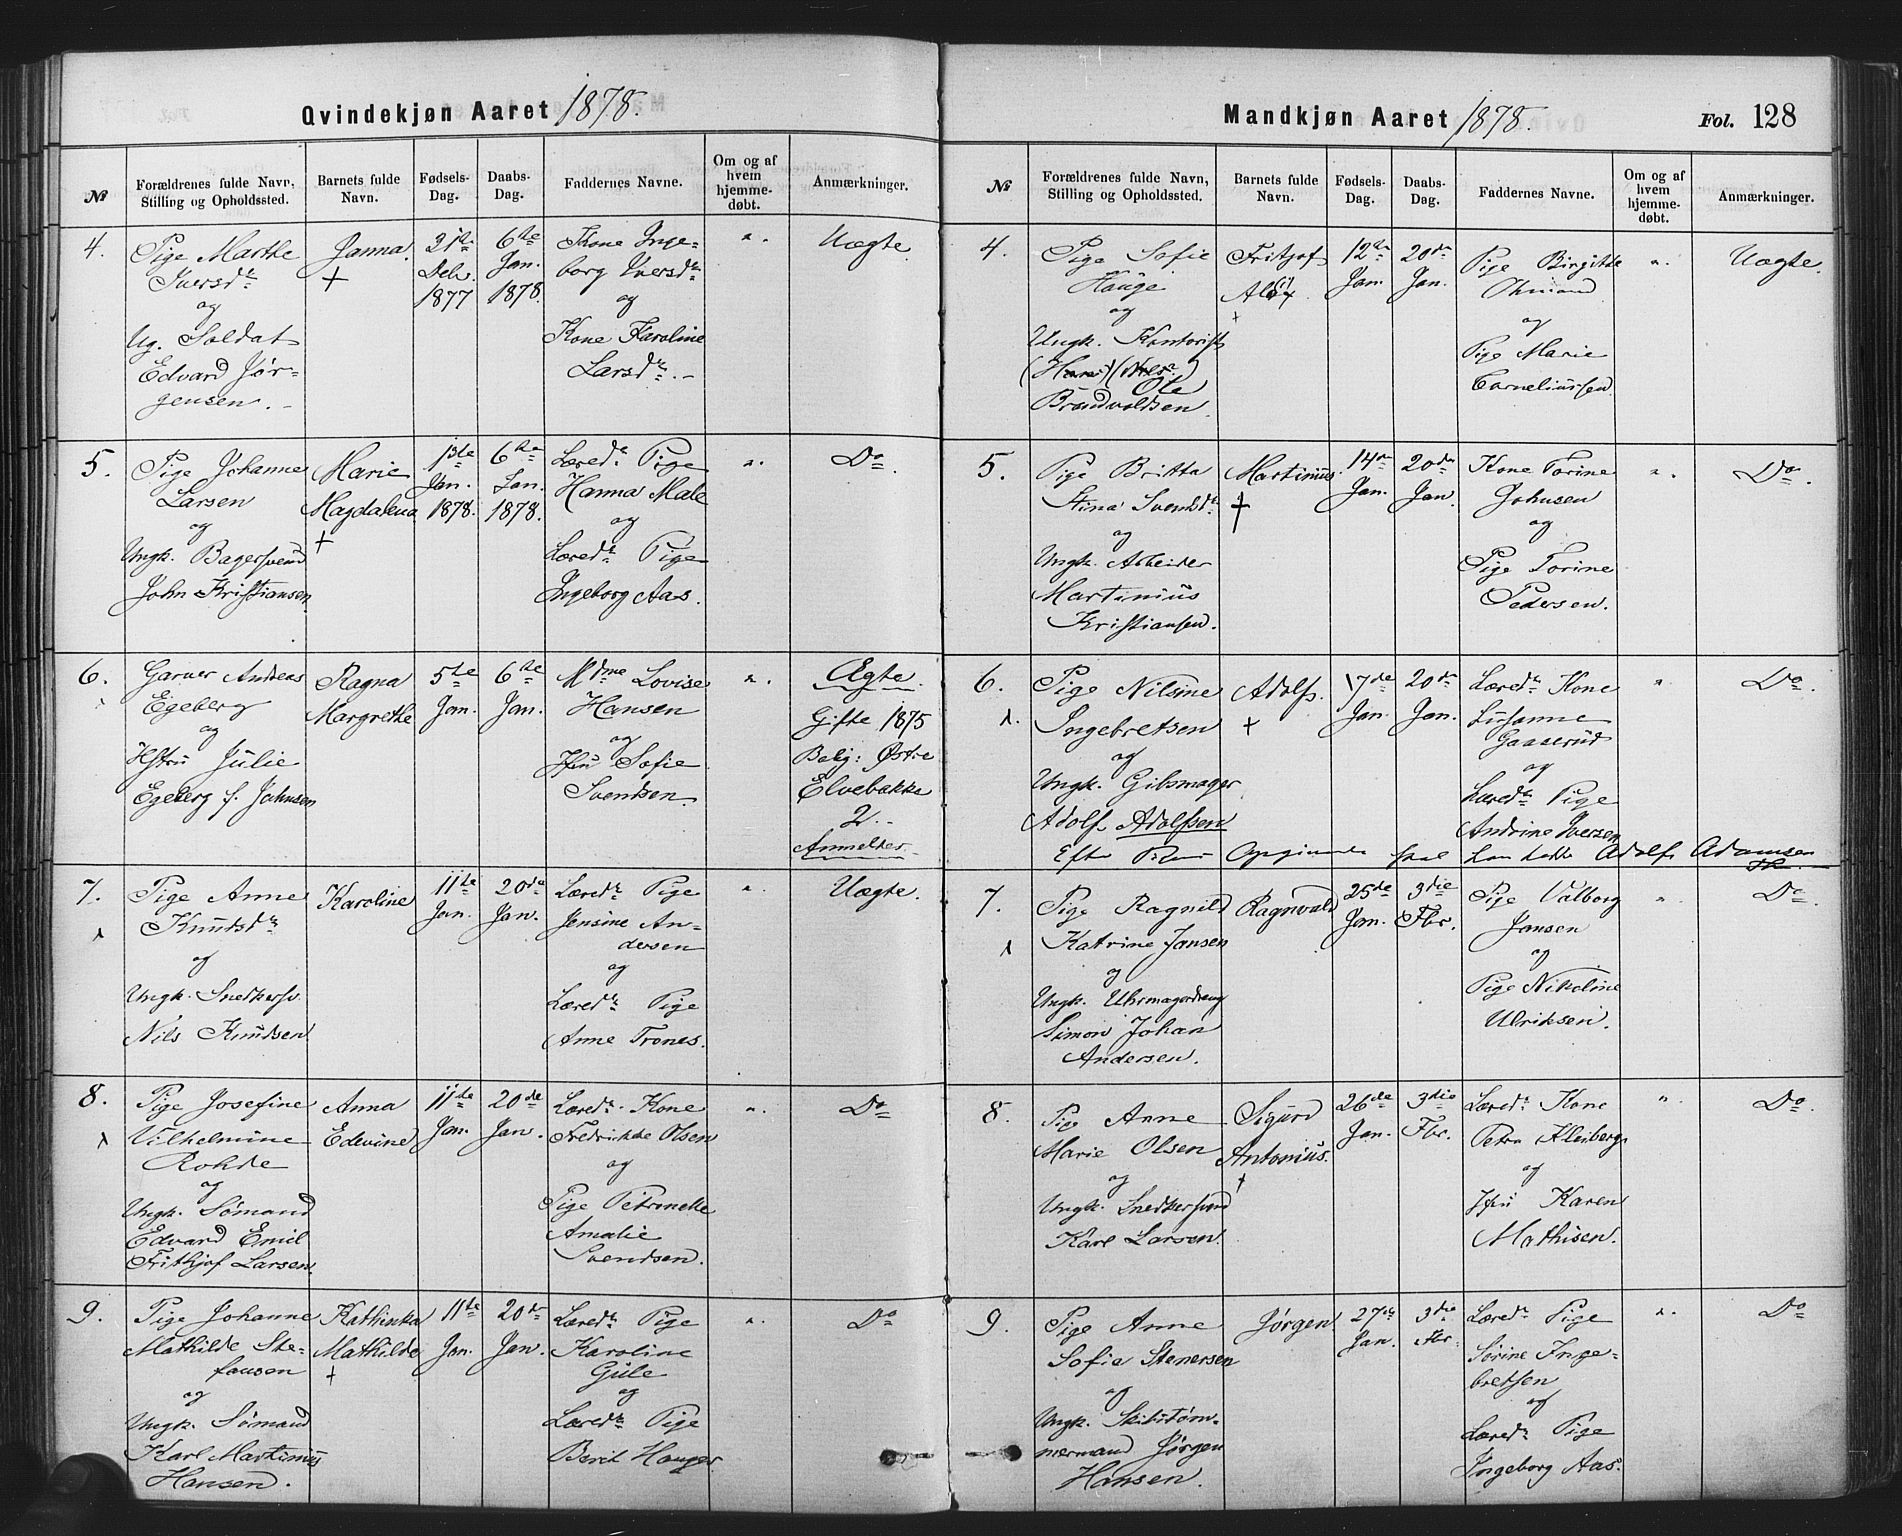 Qvindekjøn Aaret 1878.
№
Forældrenes fulde Navn, Stilling og Opholdssted.
Barnets fulde Navn.
Fødsels-Dag.
Daabs-Dag.
Faddernes Navne.
Om og af hvem hjemme-døbt.
Anmærkninger.
4.
Pige Marthe
Iversd.
og
Ug. Soldat
Edvard Jør-
gensen.
Janna.
+
21te
Deb.
1877
6te
Jan.
1878.
Kone Inge-
borg Iversd.
og
Kone Karoline
Larsd.
".
Uægte
5.
Pige Johanne
Larsen
og
Ungk. Bagersvend
John Kristiansen.
Marie
Magdalena
+
1ste
Jan.
1878.
6te
Jan.
1878.
Læred. Pige
Hanna Male
og
Læred. Pige
Ingeborg Aas.
".
Do.
6.
Garver Andreas
Egeberg
og
Hstru Julie
Egeberg f. Johnsen
Ragna
Margrethe
5te
Jan.
6te
Jan.
Mdme Lovise
Hansen
og
Hstru Sofie
Svendsen.
".
Ægte.
Gifte 1875
Bolig: Østre
Elvebakke
2.
Anmelder
7.
Pige Anne
Knudsd.
og
Ungk. Snedkersv.
Nils Knudsen
Karoline
11te
Jan.
20de
Jan.
Læred. Pige
Jensine An-
dersen
og
Læred. Pige
Anne Trones.
".
Uægte.
8.
Pige Josefine
Vilhelmine
Rohde
og
Ungk. Sømand
Edvard Emil
Frithjof Larsen.
Anna
Edevine
11te
Jan.
20de
Jan.
Læred. Kone
Fredrikke Olsen
og
Pige Petronelle
Amalie
Svendsen.
".
Do
9.
Pige Johanne
Mathilde Ste-
fansen
og
Ungk. Sømand
Karl Martinius
Hansen.
Kathinka
Mathilde
+
11te
Jan.
20de
Jan.
Læred. Pige
Karoline
Gule
og
Læred. Pige
Berit Hauger.
".
Do
Mandkjøn Aaret 1878.
Fol. 128
№
Forældrenes fulde Navn, Stilling og Opholdssted.
Barnets fulde Navn.
Fødsels-Dag.
Daabs-Dag.
Faddernes Navne.
Om og af hvem hjemme-døbt.
Anmærkninger.
4.
Pige Sofie
Hauge
og
Ungk. Kontorist
Ole
Brandvoldsen.
Fritjof
+
12te
Jan.
20de
Jan.
Pige Birgitte
og
Pige Marie
Corneliussen.
".
Uægte.
5.
Pige Britta
Stina Svendsd.
og
Ungk. Arbeider
Martinius
Kristiansen.
Martinius
+
14de
Jan.
20de
Jan.
Kone Torine
Johnsen
og
Pige Torine
Pedersen.
".
Do.
6.
Pige Nilsine
Ingebretsen
og
Ungk. Gibsmager
Adolf Adolfsen
Adolf.
+
17de
Jan.
20de
Jan.
Læred. Kone
Susanne
Gaaserud
og
Læred. Pige
Andrine Iversen
".
Do.
Efter Opgivende skal han hedde Adolf Adamsen
7.
Pige Ragnild
Katrine Jansen
og
Ungk. Uhrmagerdreng
Simon Johan
Andersen.
Ragnvald
25de
Jan.
3die
Fbr.
Pige Valborg
Jansen
og
Pige Nikoline
Ulriksen.
".
Do
8.
Pige Anne
Marie Olsen
og
Ungk. Snedkersvend
Karl Larsen.
Sigurd
Antonius.
+
26de
Jan.
3die
Fbr.
Læred. Kone
Petra Kleiberg
og
Hstru Karen
Mathisen.
".
Do.
9.
Pige Anne
Sofie Stenersen
og
Ungk. Skibstøm-
mermand Jørgen
Hansen.
Jørgen.
27de
Jan.
3die
Fbr.
Læred. Pige
Sørine Inge-
bretsen
og
Læred. Pige
Ingeborg Aas.
".
Do